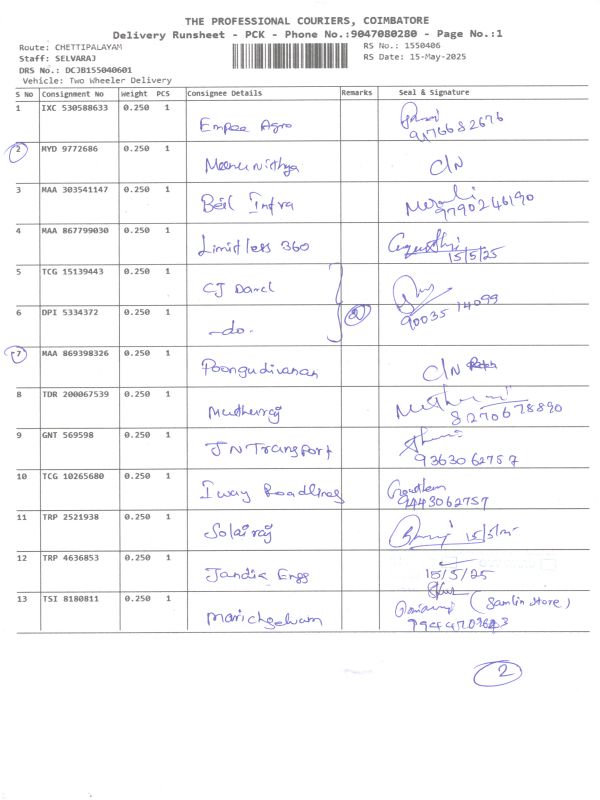 THE PROFESSIONAL COURIERS, COIMBATORE
Delivery Runsheet - PCK - Phone No.:9047080280 - Page No.:1
Route: CHETTIPALAYAM RS No.: 1550406
Staff: SELVARAJ RS Date: 15-May-2025
DRS No.: DCJB155040601
Vehicle: Two Wheeler Delivery
S No Consignment No Weight PCS Consignee Details Remarks Seal & Signature
1 IXC 530588633 0.250 1
Empee Agro 9176682676
2 MYD 9772686 0.250 1
C/N
3 MAA 303541147 0.250 1
Beil Infra 9790246190
4 MAA 867799030 0.250 1
Limitless 360
15/5/25
5 TCG 15139443 0.250 1
CJ Darcl
6 DPI 5334372 0.250 1
-do- 2 90035 14099
7 MAA 869398326 0.250 1
Poongudivanan C/N
8 TDR 200067539 0.250 1
Muthuraj 8270678890
9 GNT 569598 0.250 1
JN Transport 9363062757
10 TCG 10265680 0.250 1
Iway Roadlines Gowtham
9443062757
11 TRP 2521938 0.250 1
Solairaj 15/5/25
12 TRP 4636853 0.250 1
Engg 15/5/25
13 TSI 8180811 0.250 1
Marichselvam (Samlin Store)
2